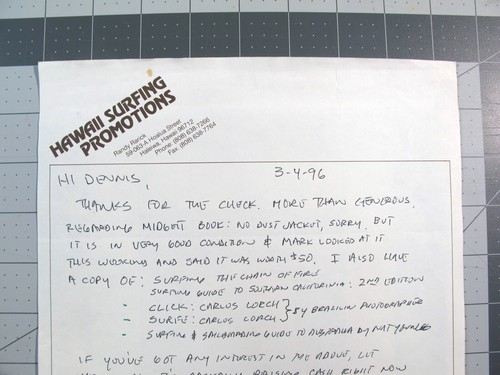 HAWAII SURFING
PROMOTIONS
Randy Rarick
59-063-A Hoalua Street
Haleiwa, Hawaii 96712
Phone: (808) 638-7266
Fax: (808) 638-7764
HI DENNIS, 3-4-96
THANKS FOR THE CHECK. MORE THAN GENEROUS.
REGARDING MIDGETT BOOK: NO DUST JACKET, SORRY. BUT
IT IS IN VERY GOOD CONDITION & MARK LOOKED AT IT
THIS WEEKEND AND SAID IT WAS WORTH $50. I ALSO HAVE
A COPY OF: SURFING THE CHAIN OF FIRE
SURFING GUIDE TO SOUTHERN CALIFORNIA: 2ND EDITION
- CLICK: CARLOS LORCH } BY BRAZILIAN PHOTOGRAPHER
- SURFE: CARLOS LORCH
- SURFING & SAILBOARDING GUIDE TO AUSTRALIA BY NAT YOUNG
IF YOU'VE GOT ANY INTEREST IN THE ABOVE, LET
RAISING CASH RIGHT NOW